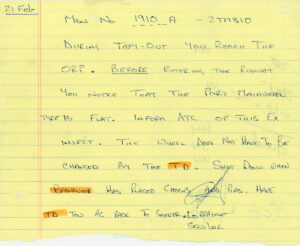 21 Feb
Msn No 1910 A -
During Taxy-Out You Reach The
ORP. Before Entering The Runway
You Notice That The Port Mainwheel
Tyre Is Flat. Inform ATC Of This Ex
Inject. The Wheel Does Not Have To Be
Changed By The TD. Shut Down When
Has Placed Chocks And Pins. Have
TD Tow AC Back To